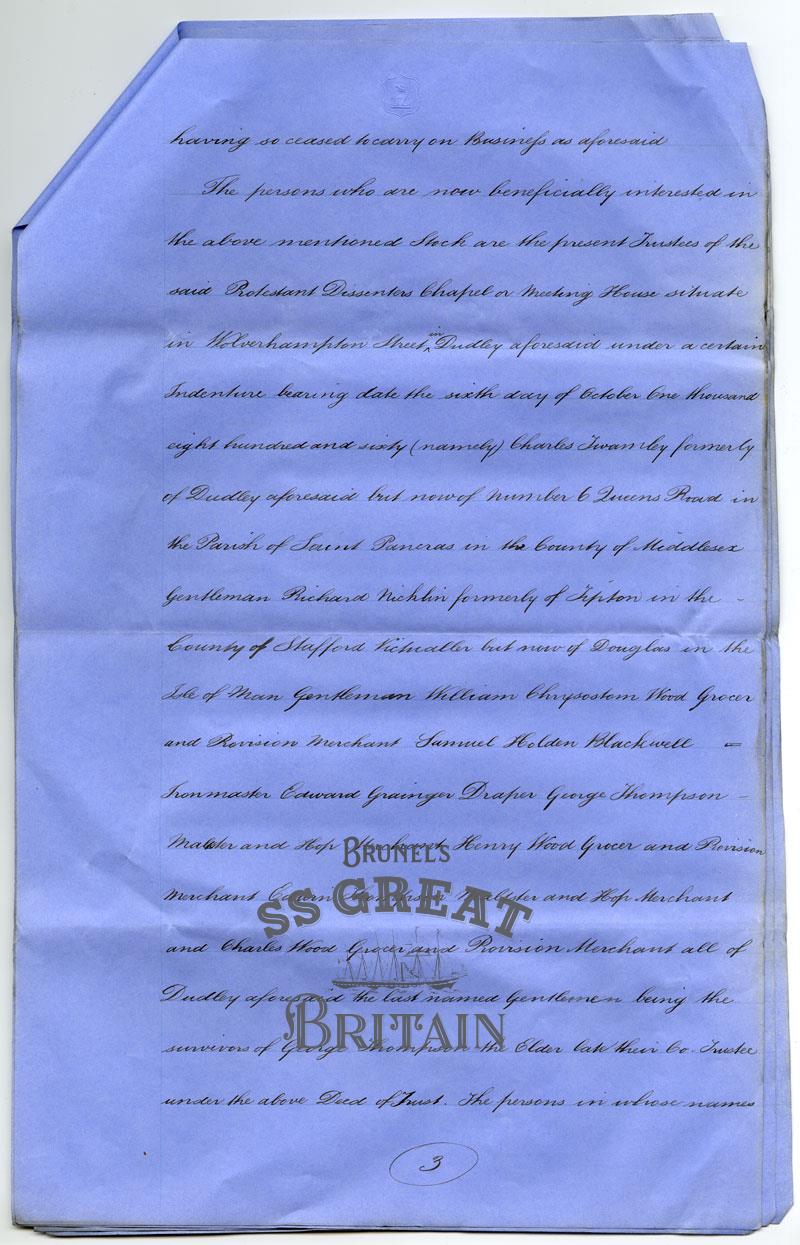 having so ceased to carry on Business as aforesaid
The persons who are now beneficially interested in
the above mentioned Stock are the present Trustees of the
said Protestant Dissenters Chapel or Meeting House situate
in Wolverhampton Street in Dudley aforesaid under a certain
Indenture bearing date the sixth day of October One thousand
eight hundred and sixty (namely) Charles Twamley formerly
of Dudley aforesaid but now of Number 6 Queens Road in
the Parish of Saint Pancras in the County of Middlesex
Gentleman Richard Nicklin formerly of Tipton in the –
County of Stafford Victualler but now of Douglas in the
Isle of Man Gentleman William Chrysostom Wood Grocer
and Provision Merchant Samuel Holden Blackwell =
Ironmaster Edward Grainger Draper George Thompson –
Malster and Hop Merchant Henry Wood Grocer and Provision
Merchant Edwin Thompson Maltster and Hop Merchant
and Charles Wood Grocer and Provision Merchant all of
Dudley aforesaid the last named Gentlemen being the
survivors of George Thompson the Elder late their Co-Trustee
under the above Deed of Trust. The persons in whose names
3
BRUNEL'S
SS GREAT
BRITAIN